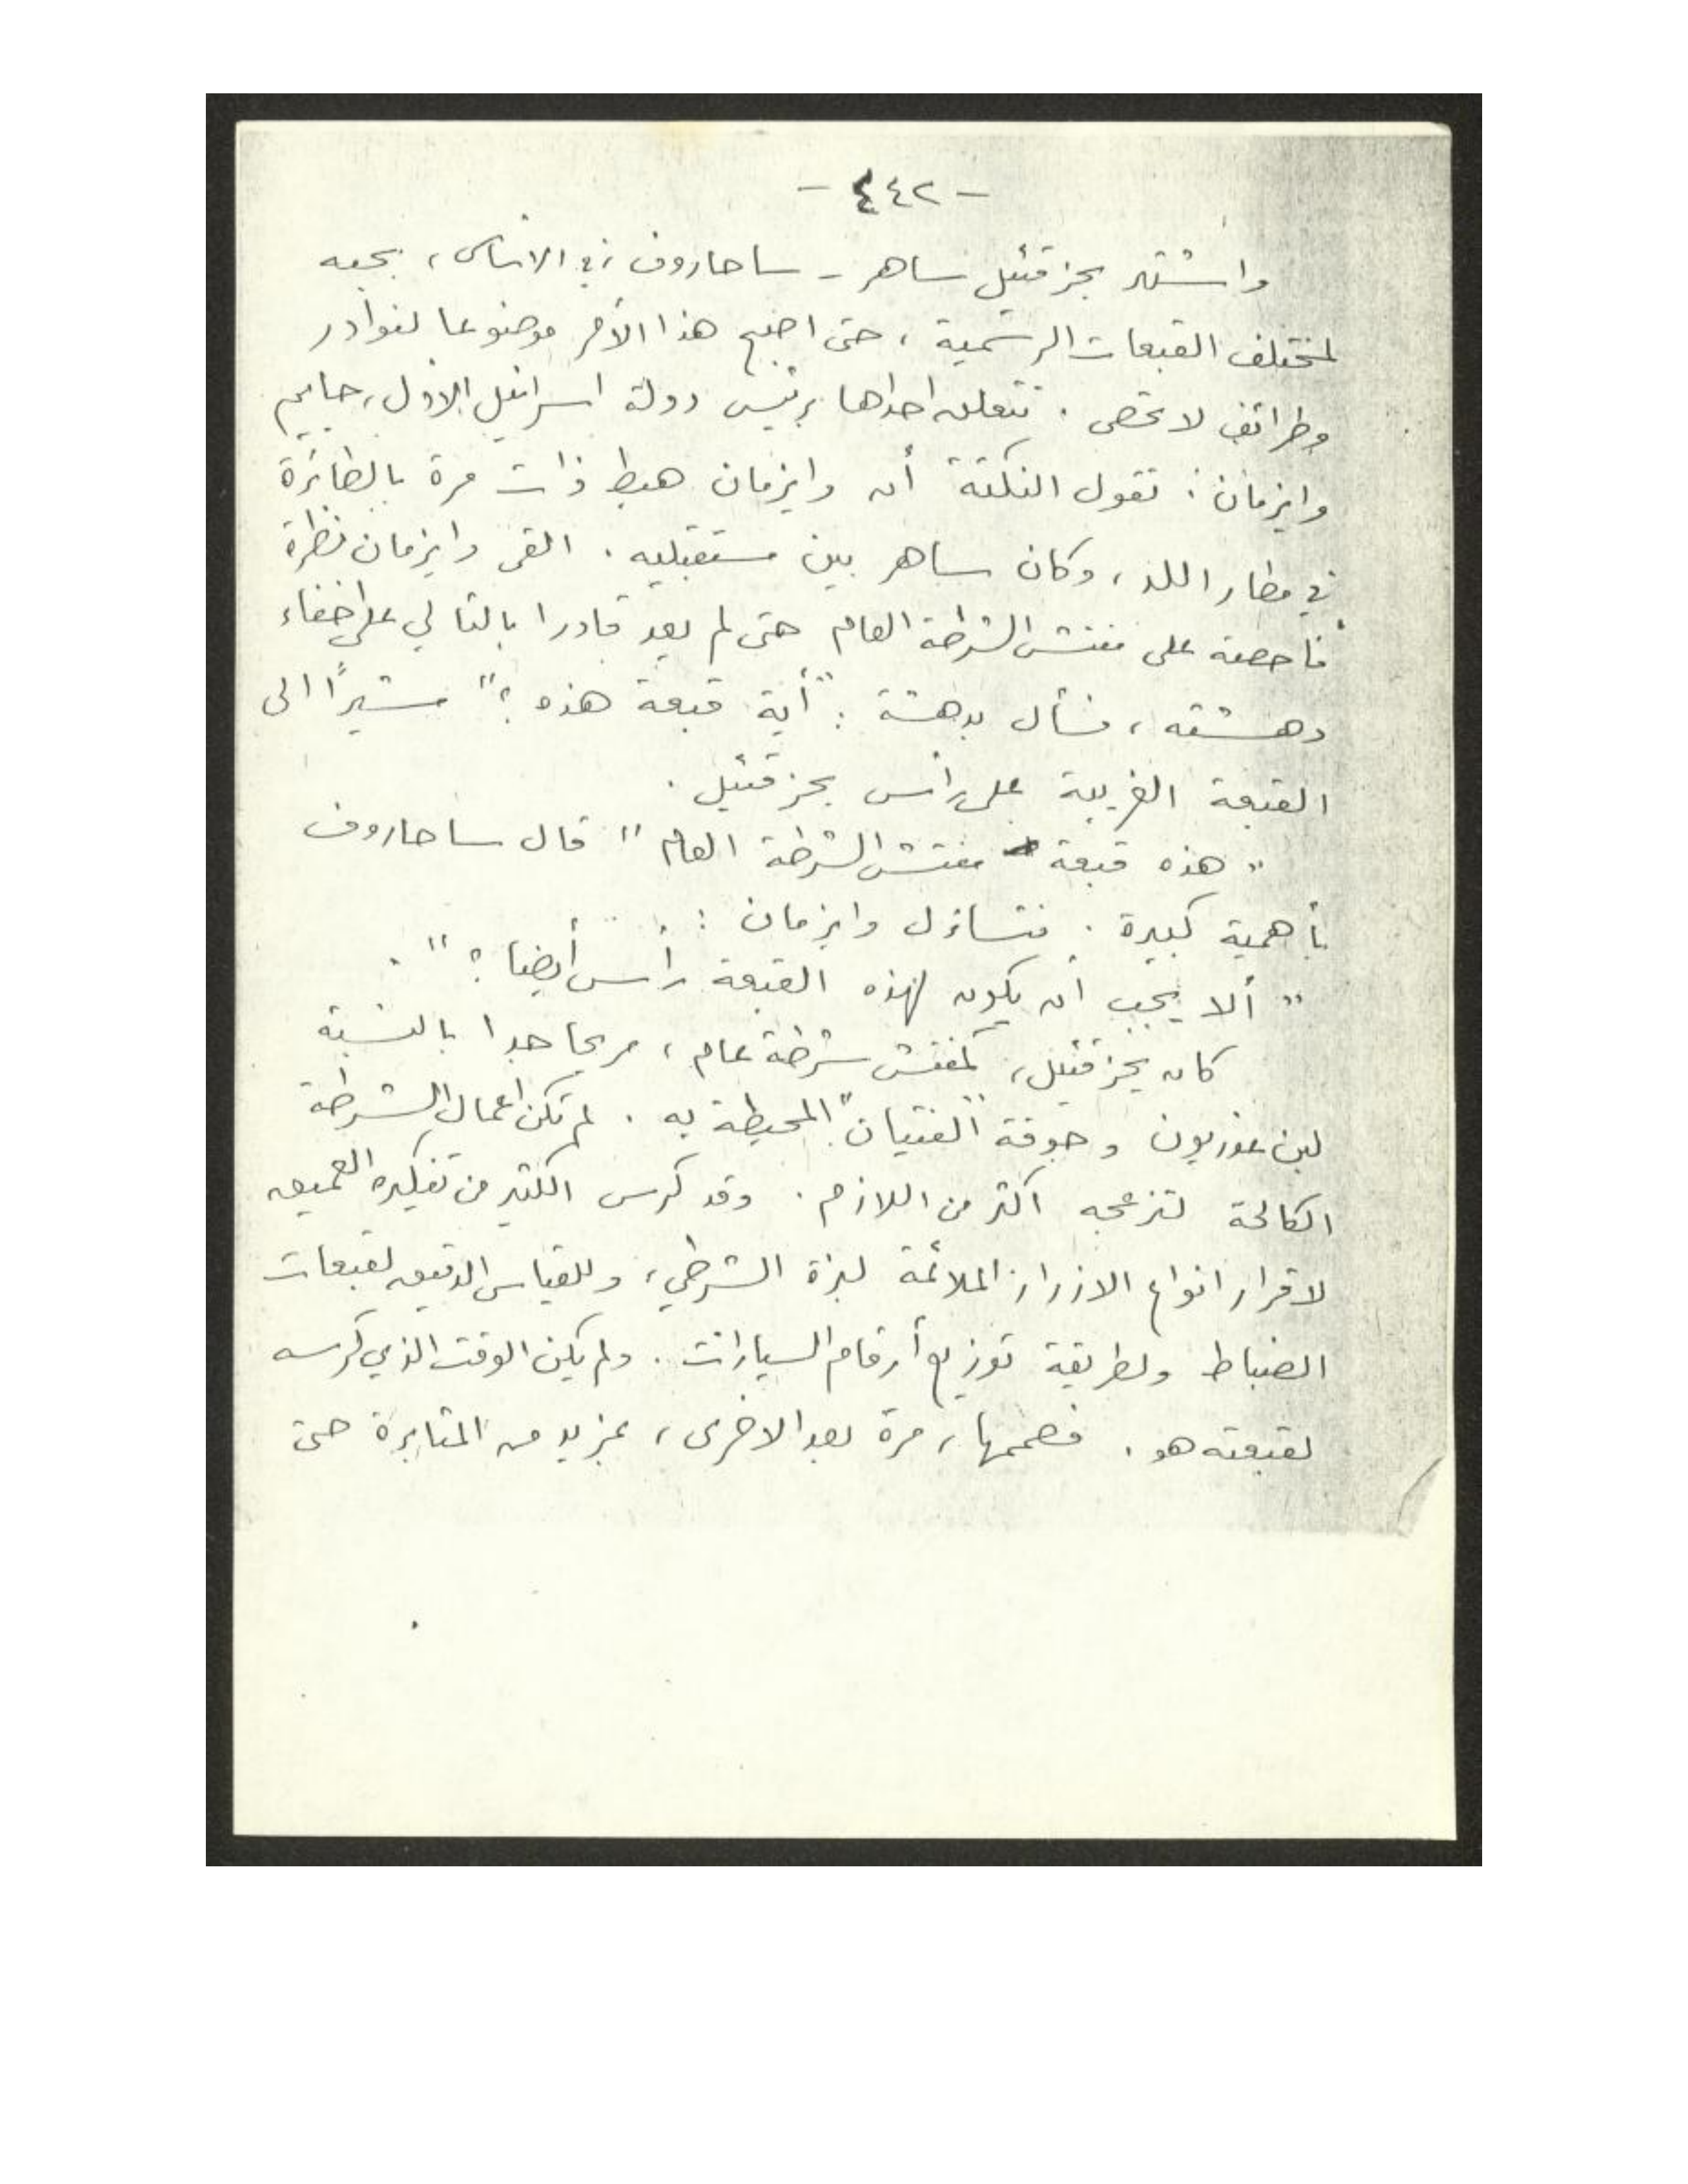 - ٤٤٢ -
واشتهر يحزقئيل ساهر - ساحاروف في الاساس، بحبه
لمختلف القبعات الرسمية، حتى اصبح هذا الأمر موضوعا لنوادر
وطرائف لا تحصى. تتعلق احداها برئيس دولة اسرائيل الاول، حاييم
وايزمان: تقول النكتة أن وايزمان هبط ذات مرة بالطائرة
في مطار اللد، وكان ساهر بين مستقبليه. القى وايزمان نظرة
فاحصة على مفتش الشرطة العام حتى لم يعد قادرا بالتالي على اخفاء
دهشته، فسأل بدهشة: "أية قبعة هذه؟" مشيرًا الى
القبعة الغريبة على رأس يحزقئيل.
"هذه قبعة مفتش الشرطة العام" قال ساحاروف
بأهمية كبيرة. فتساءل وايزمان:
"ألا يجب أن يكون لهذه القبعة رأس أيضا؟".
كان يحزقئيل، كمفتش شرطة عام، مريحا جدا بالنسبة
لبن غوريون وجوقة "الفتيان" المحيطة به. لم تكن اعمال الشرطة
الكالحة لتزعجه اكثر من اللازم. وقد كرس الكثير من تفكيره العميق
لاقرار انواع الازرار الملائمة لبزة الشرطي، وللقياس الدقيق لقبعات
الضباط ولطريقة توزيع أرقام السيارات. ولم يكن الوقت الذي كرسه
لقبعته هو. فصممها، مرة بعد الاخرى، بمزيد من المثابرة حتى